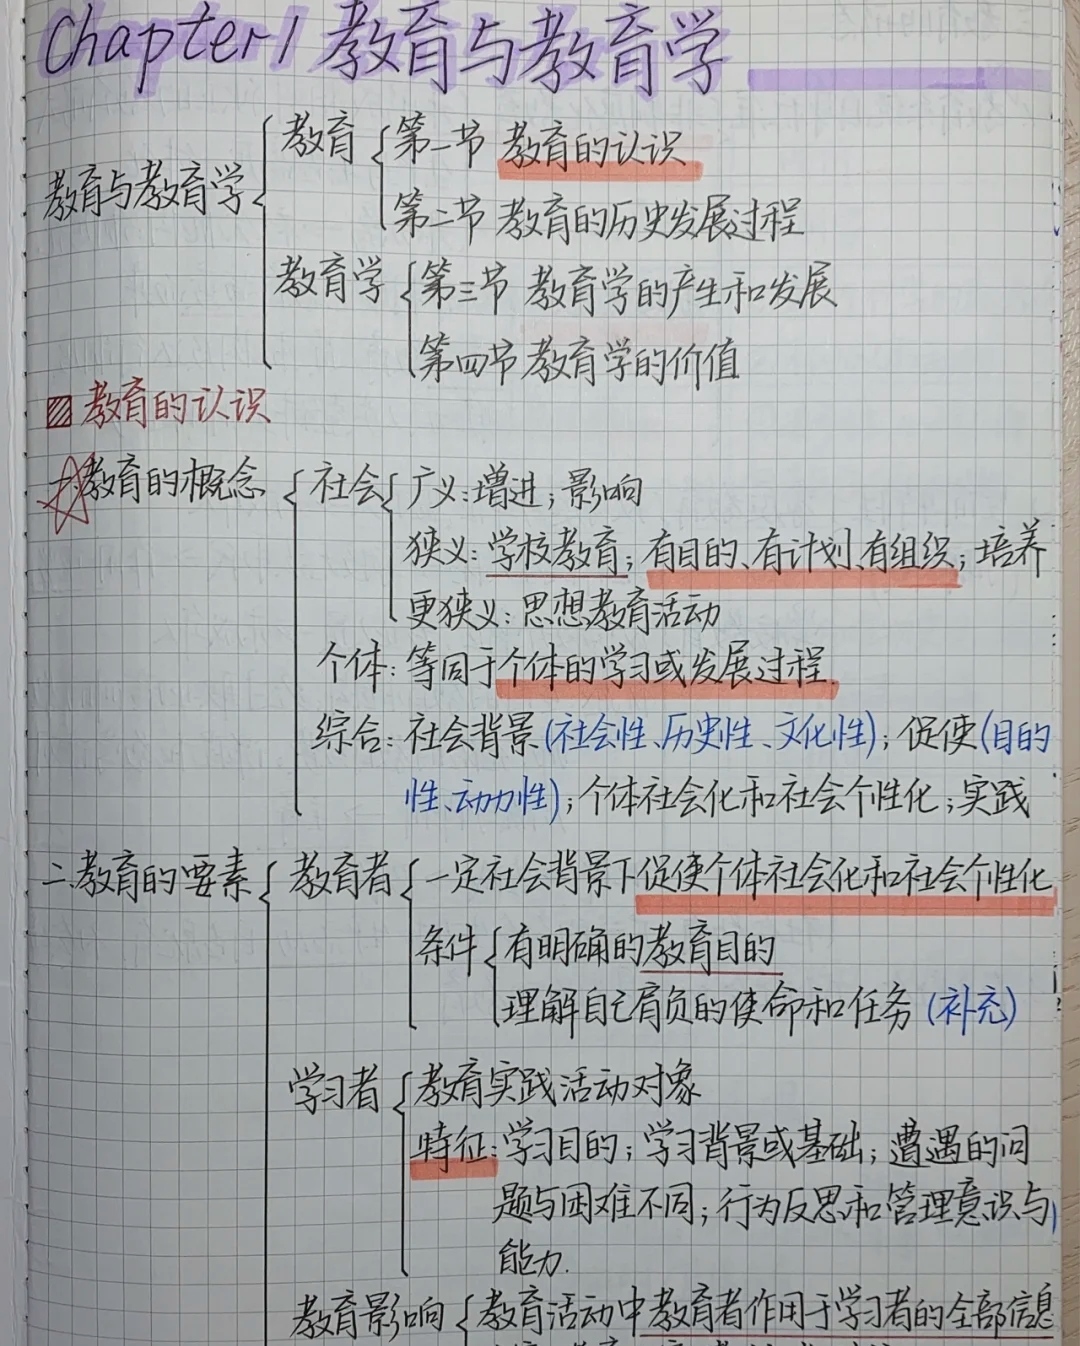 Chapter1 教育与教育学
教育 第一节 教育的认识
教育与教育学
第二节 教育的历史发展过程
教育学 第三节 教育学的产生和发展
第四节 教育学的价值
教育的认识
一.教育的概念 社会 广义:增进;影响
狭义:学校教育;有目的、有计划、有组织;培养
更狭义:思想教育活动
个体:等同于个体的学习或发展过程.
综合:社会背景(社会性、历史性、文化性);促使(目的
性、动力性);个体社会化和社会个性化;实践
二.教育的要素 教育者 一定社会背景下促使个体社会化和社会个性化
条件 有明确的教育目的
理解自己肩负的使命和任务(补充)
学习者 教育实践活动对象
特征:学习目的;学习背景或基础;遭遇的问
题与困难不同;行为反思和管理意识与
能力.
教育影响 教育活动中教育者作用于学习者的全部信息